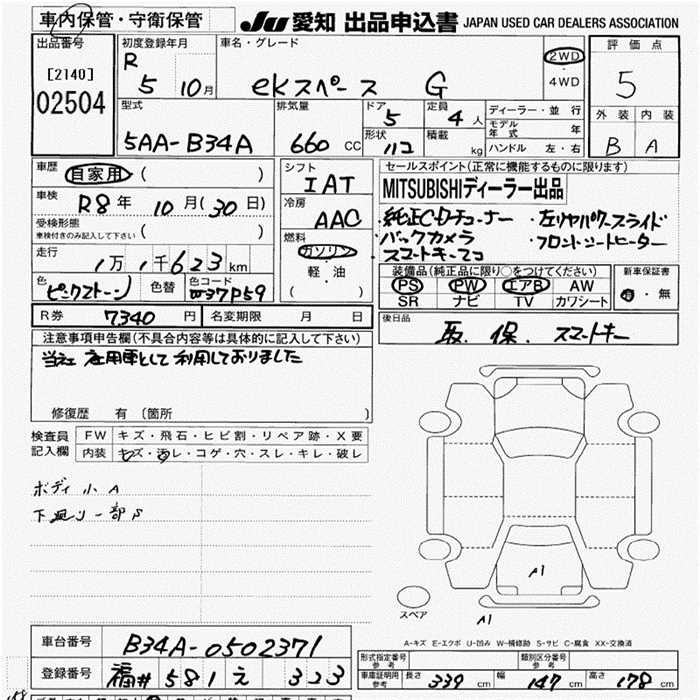 車内保管・守衛保管
JU 愛知 出品申込書 JAPAN USED CAR DEALERS ASSOCIATION
出品番号
[2140]
02504
初度登録年月
R 5 10月
車名・グレード
eKスペース G
2WD
4WD
評価点
5
外装 内装
B A
型式
5AA-B34A
排気量
660 CC
ドア 5
形状 ハコ
定員 4人
積載 kg
ディーラー・並行
モデル年式 年
ハンドル 左・右
車歴 自家用 ( )
車検 R8年 10月(30日)
受検形態
車検付きのみ記入して下さい ( )
走行 1万1千623km
色 ピンクストーン 色替 色コード
シフト IAT
冷房 AAC
燃料
ガソリン
軽・油
( )
セールスポイント(正常に機能するものに限ります)
MITSUBISHIディーラー出品
・左リヤパワースライド
バックカメラ ・フロントシートヒーター
装備品(純正品に限り○をつけてください)
PS PW エアB AW
SR ナビ TV カワシート
新車保証書
有・無
R券 7340円 名変期限 月 日
後日品
取. 保. スマートキー
注意事項申告欄(不具合内容等は具体的に記入して下さい)
当社 社用車として利用しておりました
修復歴 有(箇所 )
検査員記入欄
FW キズ・飛石・ヒビ割・リペア跡・X要
内装 キズ・汚レ・コゲ・穴・スレ・キレ・破レ
ボディ小A
A1
スペア
A1
A-キズ E-エクボ U-凹み W-補修跡 S-サビ C-腐食 XX-交換済
車台番号 B34A-0502371
登録番号 福井 581 え 323
形式指定番号参考
類別区分番号参考
車庫証明用参考 長さ 339 cm 幅 147 cm 高さ 178 cm